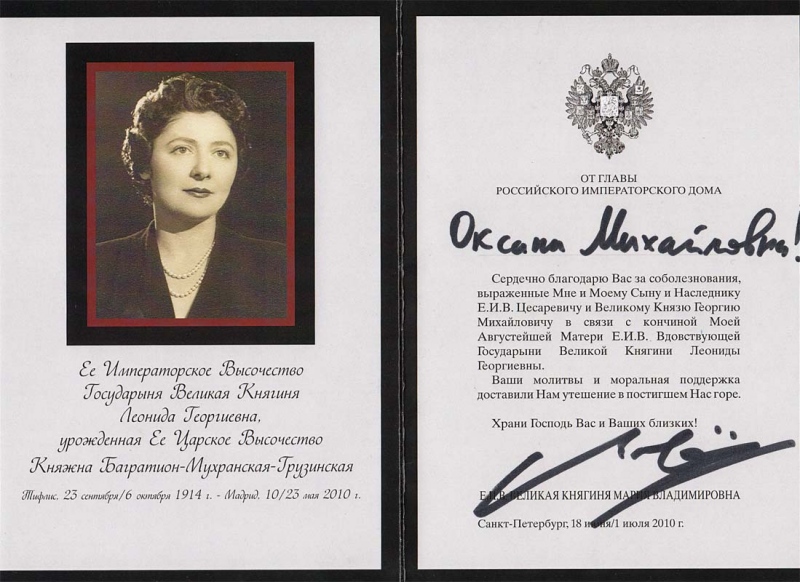 Ее Императорское Высочество
Государыня Великая Княгиня
Леонида Георгиевна,
урожденная Ее Царское Высочество
Княжна Багратион-Мухранская-Грузинская
Тифлис, 23 сентября/6 октября 1914 г. - Мадрид, 10/23 мая 2010 г.
ОТ ГЛАВЫ
РОССИЙСКОГО ИМПЕРАТОРСКОГО ДОМА
Оксана Михайловна!
Сердечно благодарю Вас за соболезнования,
выраженные Мне и Моему Сыну и Наследнику
Е.И.В. Цесаревичу и Великому Князю Георгию
Михайловичу в связи с кончиной Моей
Августейшей Матери Е.И.В. Вдовствующей
Государыни Великой Княгини Леониды
Георгиевны.
Ваши молитвы и моральная поддержка
доставили Нам утешение в постигшем Нас горе.
Храни Господь Вас и Ваших близких!
Е.И.В. ВЕЛИКАЯ КНЯГИНЯ МАРИЯ ВЛАДИМИРОВНА
Санкт-Петербург, 18 июня/1 июля 2010 г.